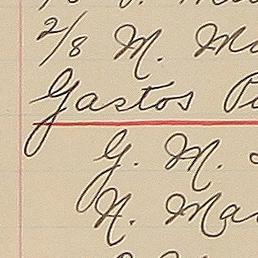 2/8 M. Ma
Gastos P
G. M.
N. Ma